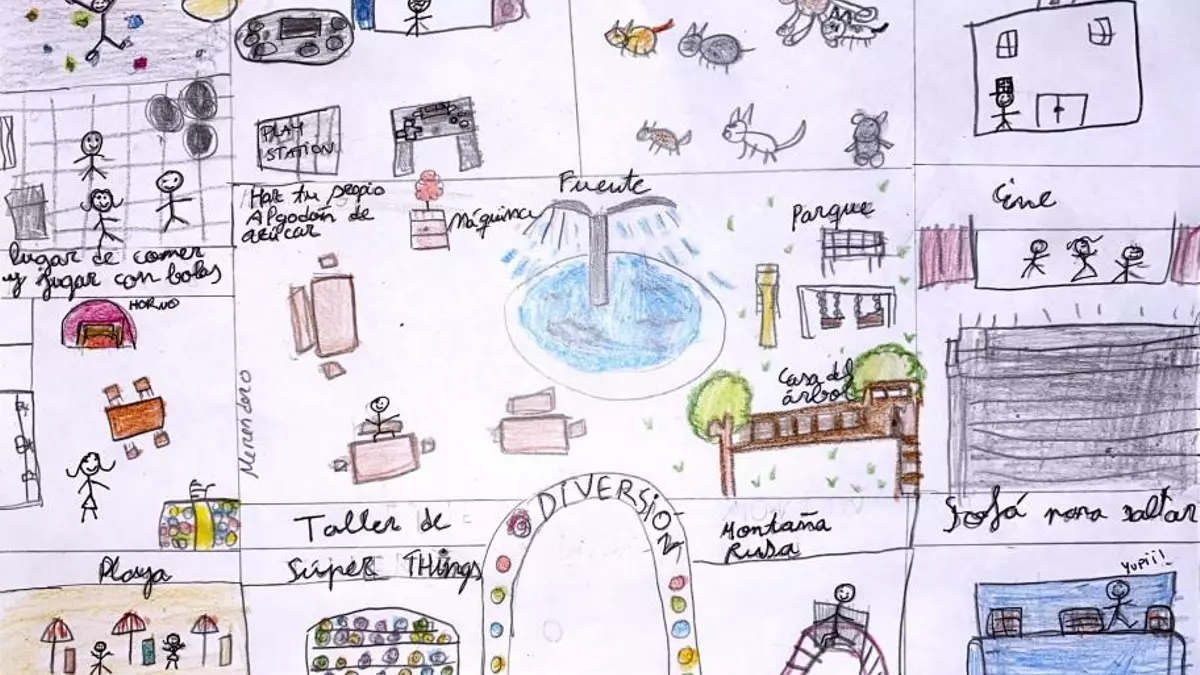 PLAY
STATION
Haz tu propio
Algodón de
azúcar
Máquina
Fuente
Parque
Cine
lugar de comer
y jugar con bolas
HORNO
Casa del
árbol
Merendero
DIVERSIÓN
Taller de
Súper Things
Montaña
Rusa
Sofá para saltar
Playa
YUPII!